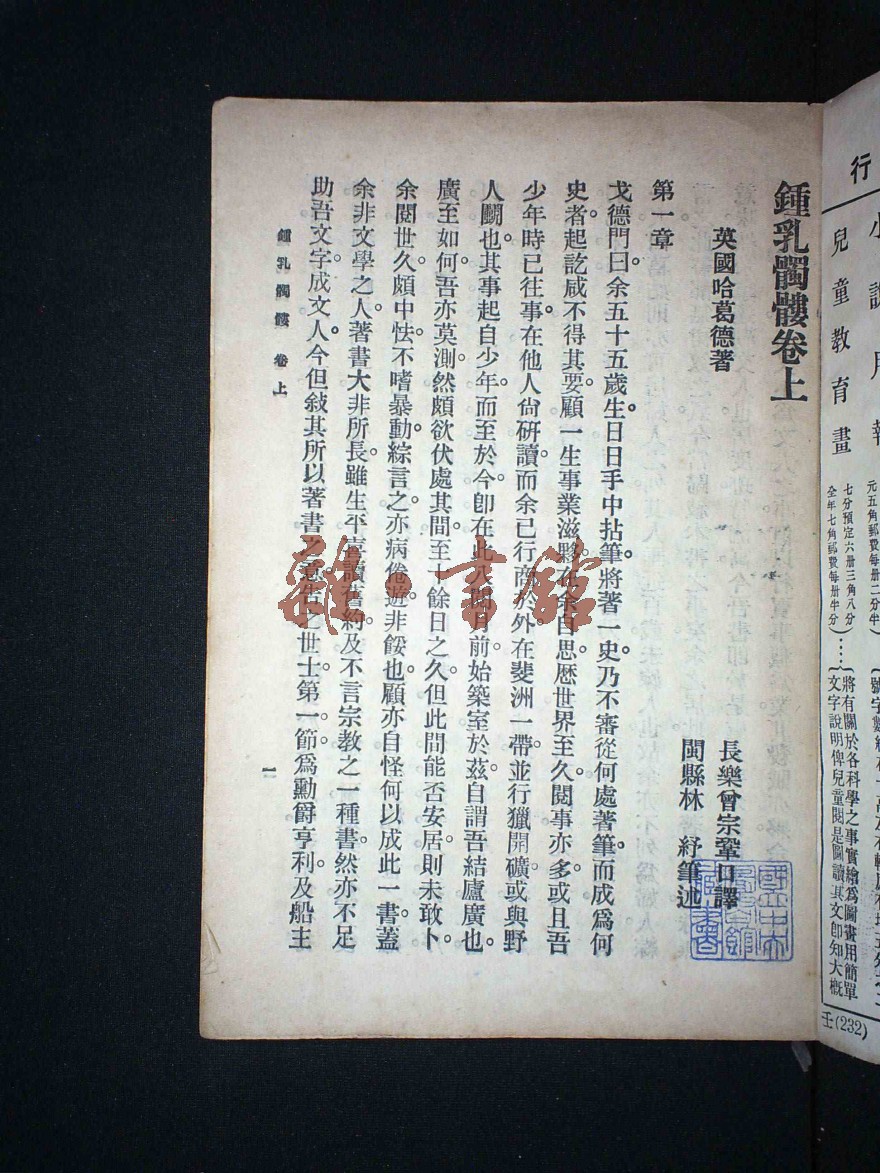 行
小說月報
兒童教育畫
元五角郵費每冊二分半
七分預定六冊三角八分
全年七角郵費每冊半分
將有關於各科學之事實繪為圖畫用簡單
文字說明俾兒童閱是圖讀其文卽知大概
壬(232)
鍾乳髑髏卷上
英國哈葛德著
長樂曾宗鞏口譯
閩縣林 紓筆述
第一章
戈德門曰余五十五歲生日日手中拈筆將著一史乃不審從何處著筆而成為何
史者起訖咸不得其要顧一生事業滋夥在余自思歷世界至久閱事亦多或且吾
少年時已往事在他人尙硏讀而余已行商於外在斐洲一帶並行獵開礦或與野
人鬭也其事起自少年而至於今卽在此八閱月前始築室於茲自謂吾結廬廣也
廣至如何吾亦莫測然頗欲伏處其間至十餘日之久但此間能否安居則未敢卜
余閱世久頗中怯不嗜暴動綜言之亦病倦遊非餒也顧亦自怪何以成此一書蓋
余非文學之人著書大非所長雖生平喜讀舊約及不言宗教之一種書然亦不足
助吾文字成文人今但敍其所以著書之意告之世士第一節為勳爵亨利及船主
鍾乳髑髏 卷上
一
雜·書館